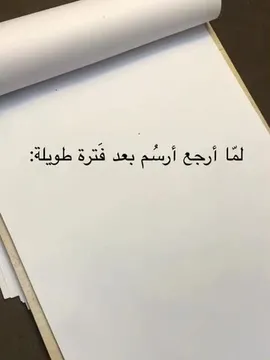 لمّا أرجع أرسُم بعد فَترة طويلة: